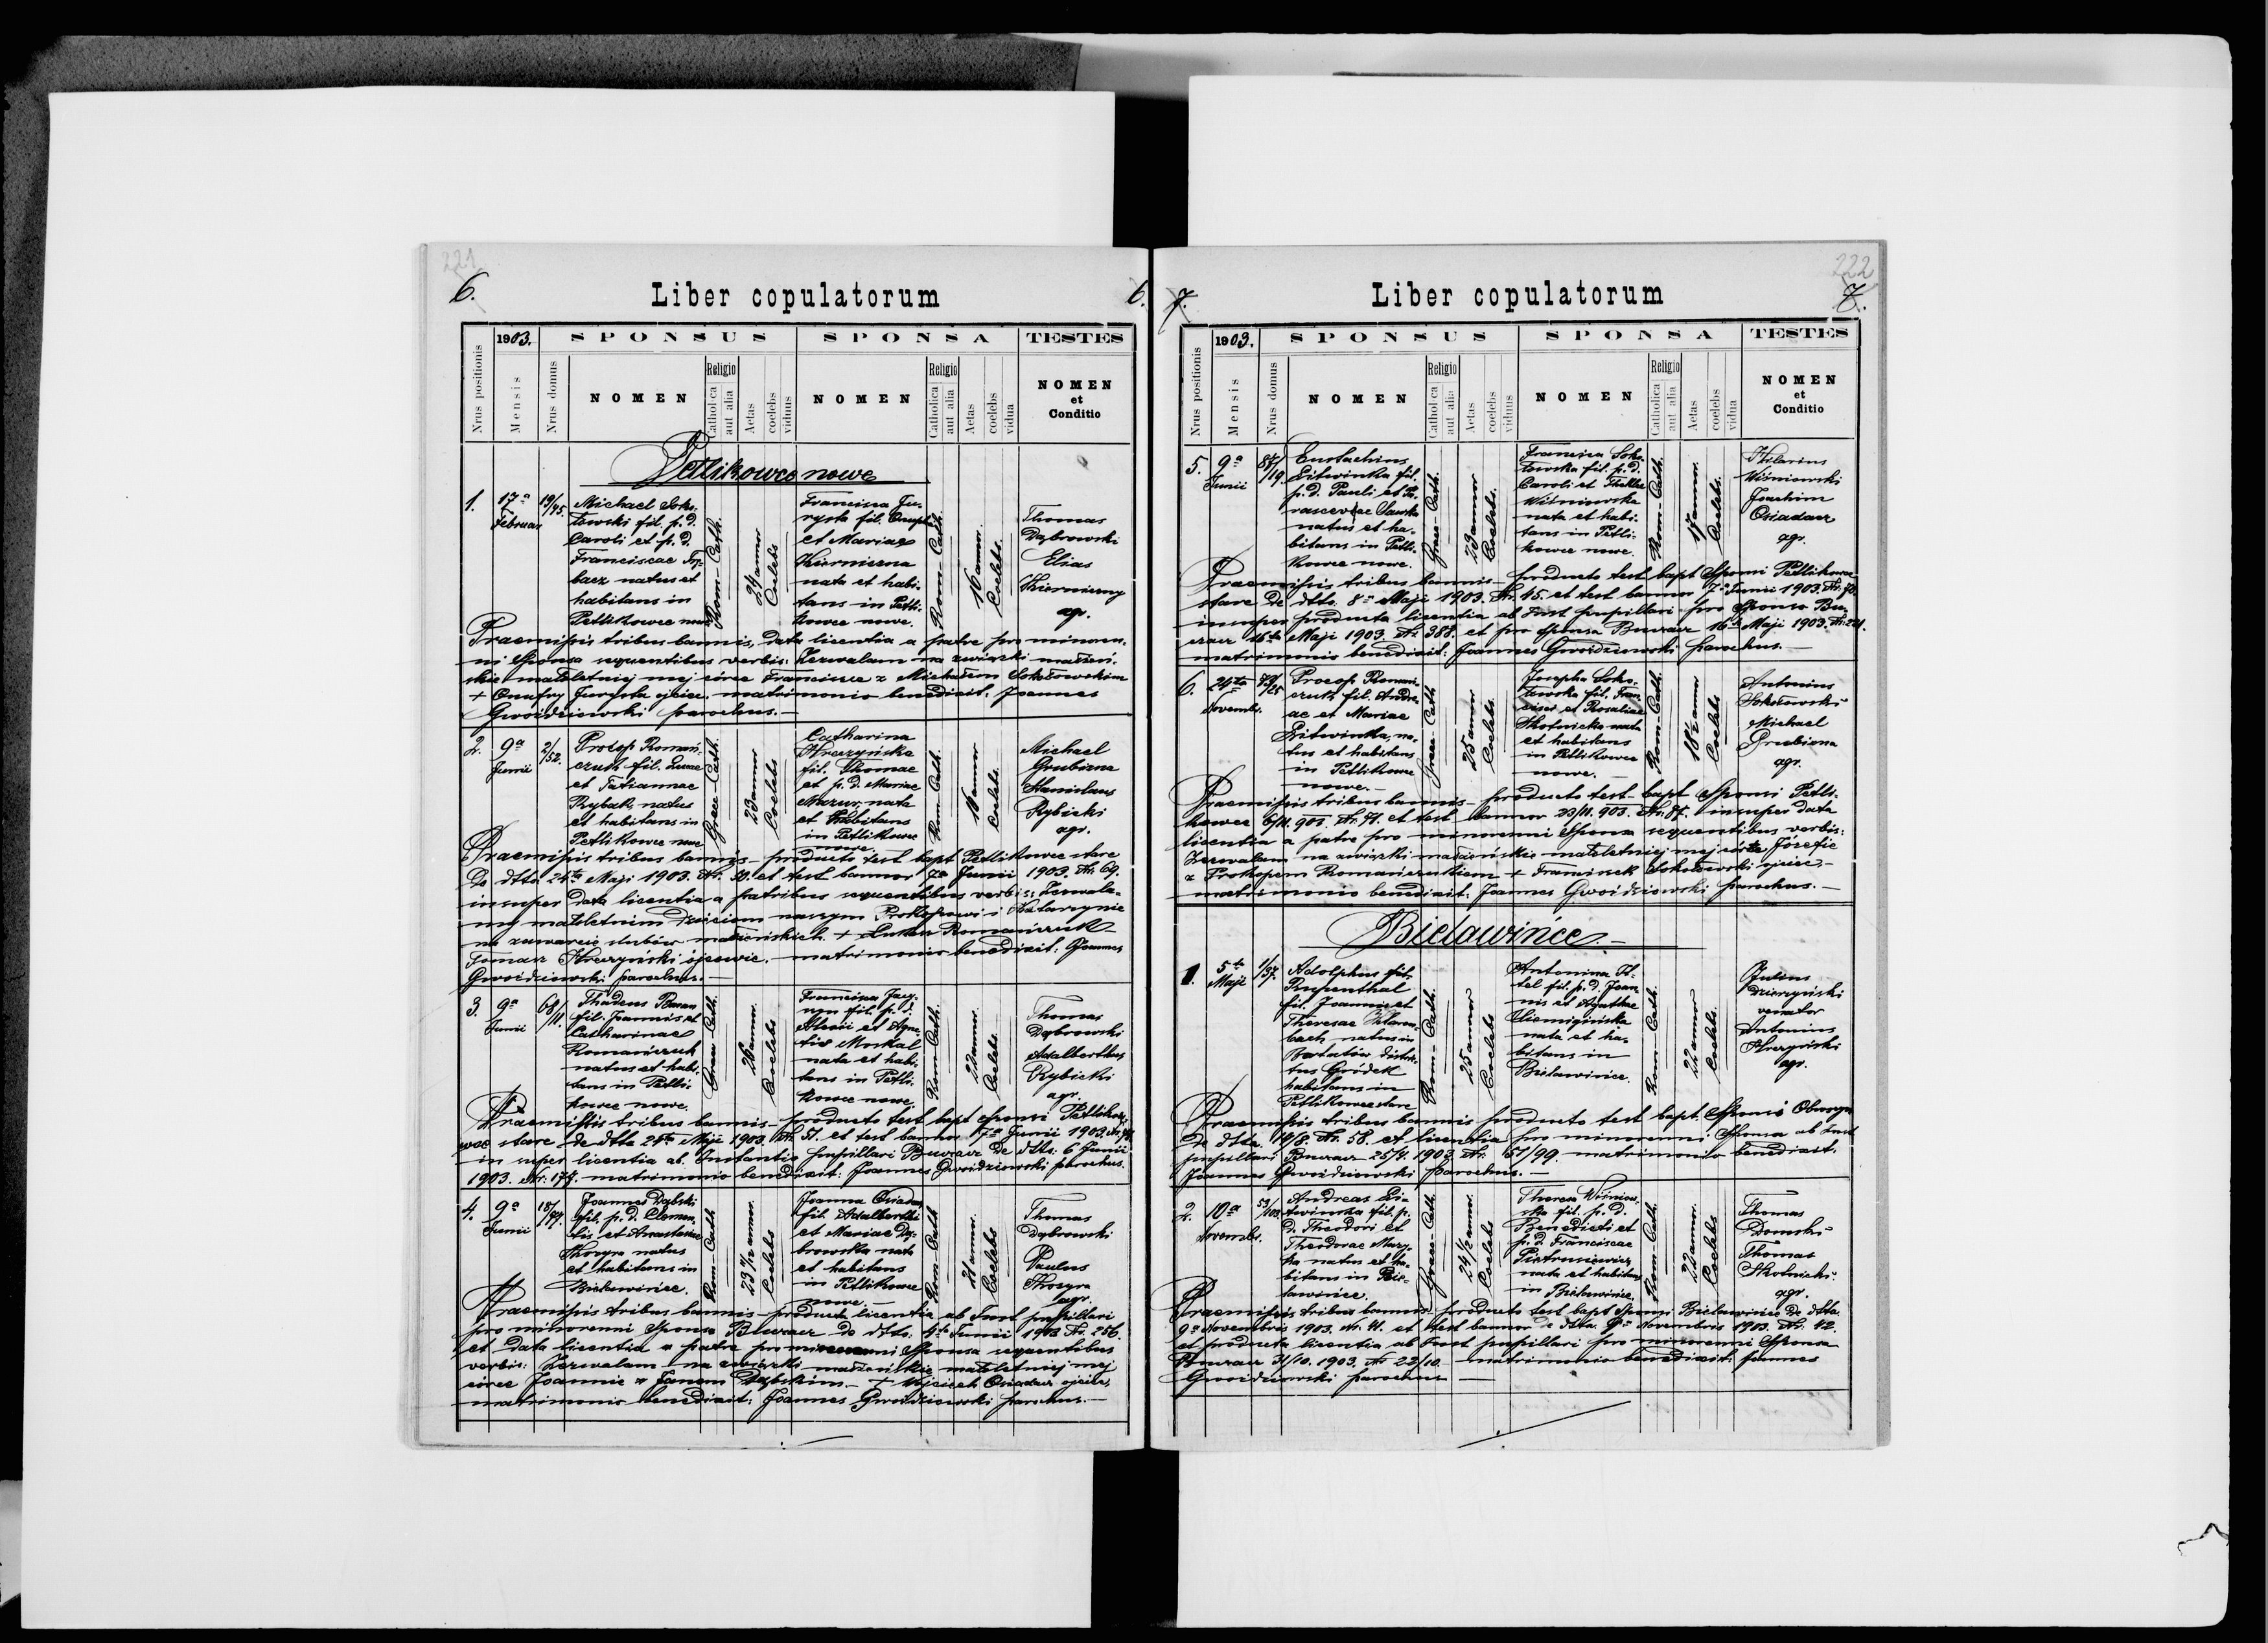 221
6.
Liber copulatorum
6.
Nrus positionis
1903.
Mensis
Nrus domus
SPONSUS
NOMEN
Religio
Catholica
aut alia
Aetas
coelebs
viduus
SPONSA
NOMEN
Religio
Catholica
aut alia
Aetas
coelebs
vidua
TESTES
NOMEN
et
Conditio
Petlikowce nowe
1.
17a
Februar
19/45.
Michael Soko-
łowski fil. p. d.
Caroli et p. d.
Franciscae
natus et
habitans in
Petlikowce nowe
Rom-Cath.
24 annor
Coelebs
Francisca Ju-
rysta fil. Onuph.
et Mariae
Kiernierna
nata et habi-
tans in Petli-
kowce nowe.
Rom-Cath.
16 annor.
Coelebs.
Thomas
Dąbrowski
Elias
Kiermierny
agr.
Praemissis tribus bannis, data licentia a patre pro minoren-
ni Sponsa sequentibus verbis: Zezwalam na związki małżeń-
skie małoletniej mej córce Francisce z Michałem Sokołowskim
+ Onufry Jurysta ojciec. matrimonio benedixit: Joannes
Gwoździowski parochus.-
2.
9a
Junii
2/52.
Procop Romań-
czuk fil. Lucae
et Tatiannae
Rybak, natus
et habitans in
Petlikowce nowe
Graec-Cath.
23 annor
Coelebs
Catharina
Hreczyńska
fil. Thomae
et p. d. Mariae
Mazur, nata
et habitans
in Petlikowce
nowe.
Rom-Cath.
16 annor
Coelebs.
Michael
Grubizna
Stanislaus
Rybicki
agr.
Praemissis tribus bannis - producto test bapt Petlikowce stare
De dtto 24ta Maji 1903. Nr. 50. et test bannor 7a Junii 1903. Nr. 69.
insuper data licentia a patribus sequentibus verbis: Zezwala-
my małoletnim dzieciom naszym Prokopowi i Katarzynie
na zawarcie ślubów małżeńskich. + Łukasz Romańczuk
Tomasz Hreczyński ojcowie. - matrimonio benedixit: Joannes
Gwoździowski parochus.-
3.
9a
Junii
68/11.
Thadeus Baran
fil. Joannis et
Catharinae
Romańczuk
natus et habi-
tans in Petli-
kowce nowe.
Graec-Cath.
26 annor.
Coelebs
Francisca
fil. p. d.
Alexii et Agne-
tis Moskal
nata et habi-
tans in Petli-
kowce nowe.
Rom-Cath.
22 annor.
Coelebs.
Thomas
Dąbrowski
Adalberthus
Rybicki
agr.
Praemissis tribus bannis - producto test bapt Sponsi Petlikow-
wce stare de dtto 24ta Maji 1903. Nr. 51. et test bannor 7a Junii 1903. Nr.
in super licentia ab. Instantia pupillari Buczacz De dtto: 6 Junii
1903. Nr: 179. matrimonio benedixit: Joannes Gwoździowski parochus.
4.
9a
Junii
Joannes Dąbski
fil. p. d. Clemen-
tis et Anastasiae
natus
et habitans in
Bielawińce.
Rom-Cath
23 1/2 annor.
Coelebs
Joanna Osiadacz
fil. Adalberthi
et Mariae Dą-
browska nata
et habitans
in Petlikowce
nowe.
Rom-Cath
21 annor.
Coelebs
Thomas
Dąbrowski
Paulus
agr.
Praemissis tribus bannis - producta licentia ab Inst pupillari
pro minorenni Sponsa Buczacz De dtto: 4ta Junii 1903 Nr. 256.
et data licentia a patre pro minorenni Sponsa sequentibus
verbis: Zezwalam na związki małżeńskie małoletniej mej
córce Joannie z Janem Dąbskim - + Wojciech Osiadacz ojciec,
matrimonio benedixit: Joannes Gwoździowski parochus.-
222
7.
Liber copulatorum
7.
Nrus positionis
1903.
Mensis
Nrus domus
SPONSUS
NOMEN
Religio
Catholica
aut alia
Aetas
coelebs
viduus
SPONSA
NOMEN
Religio
Catholica
aut alia
Aetas
coelebs
vidua
TESTES
NOMEN
et
Conditio
5.
9a
Junii
87/19.
Eustachius
Litwinka fil.
p. d. Pauli et Pa-
rascevae
natus et ha-
bitans in Petli-
kowce nowe.
Graec-Cath.
23 annor
Coelebs.
Francisca Soko-
łowska fil. p. d.
Caroli et Theklae
Wiśniowska
nata et habi-
tans in Petli-
kowce nowe.
Rom-Cath.
17 annor.
Coelebs.
Hilarius
Wiśniowski
Joachim
Osiadacz
agr.
Praemissis tribus bannis - producto test bapt Sponsi Petlikowce
stare De dtto. 8a Maji 1903. Nr. 45. et test bannor 7a Junii 1903. Nr. 70.
insuper producta licentia ab Inst pupillari pro Sponso Bu-
czacz 15ta Maji 1903. Nr. 388. et pro Sponsa Buczacz 16ta Maji 1903. Nr: 221.
matrimonio benedixit: Joannes Gwoździowski parochus.-
6.
24ta
Novembr.
Procop Romań-
czuk fil. Andre-
ae et Mariae
Litwinka, na-
tus et habitans
in Petlikowce
nowe.-
Graec-Cath
25 annor
Coelebs.
Josepha Soko-
łowska fil. Fran-
cisci et Rosaliae
Skotnicka nata
et habitans
in Petlikowce
nowe.-
Rom-Cath.
18 1/2 annor
Coelebs
Antonius
Sokołowski
Michael
Grubizna
agr.
Praemissis tribus bannis - producto test bapt Sponsi Petli-
kowce 6/11. 903. Nr. 71. et test bannor 23/11. 903. Nr. 87. insuper data
licentia a patre pro minorenni Sponsa sequentibus verbis:
Zezwalam na związki małżeńskie małoletniej mej córce Józefie
z Prokopem Romańczukiem + Franciszek Sokołowski ojciec -
matrimonio benedixit: Joannes Gwoździowski parochus.-
Bielawińce.-
1.
5ta
Maji
1/37.
Adolphus fil.
Rupenthal
fil. Joannis et
Theresae
natus in
Bartatów distric-
tus Gródek
habitans in
Petlikowce stare
Rom-Cath.
25 annor
Coelebs
Antonina
fil. p. d. Joan-
nis et Agathae
nata et ha-
bitans in
Bielawińce.
Rom-Cath.
22 annor
Coelebs
Julius
Dzierzyński
venator
Antonius
Hreczyński
agr.
Praemissis tribus bannis producto test bapt. Sponsi
De dtto 10/8. Nr. 58. et licentia pro minorenni Sponsa ab Inst
pupillari Buczacz 25/4. 1903 Nr. 51/99. matrimonio benedixit.
Joannes Gwoździowski parochus.-
2.
10a
Novembr.
53/103.
Andreas Li-
twinka fil. p.
d. Theodori et
Theodorae
natus et ha-
bitans in Bie-
lawińce.
Graec-Cath.
24 1/2 annor.
Coelebs
Theresa Wiśniow-
ska fil. p. d.
Benedicti et
p. d. Franciscae
Pietrusiewicz
nata et habitans
in Bielawińce.
Rom-Cath.
22 annor.
Coelebs
Thomas
Domski
Thomas
Skotnicki
agr.
Praemissis tribus bannis - producto test bapt Sponsi Bielawińce De dtto
9a Novembris 1903. Nr. 41. et test bannor de dtto 9a Novembris 1903. Nr. 42.
et producta licentia ab Inst pupillari pro minorenni Sponsa
Buczacz 31/10. 1903. Nr 23/10. - matrimonio benedixit: Joannes
Gwoździowski parochus -